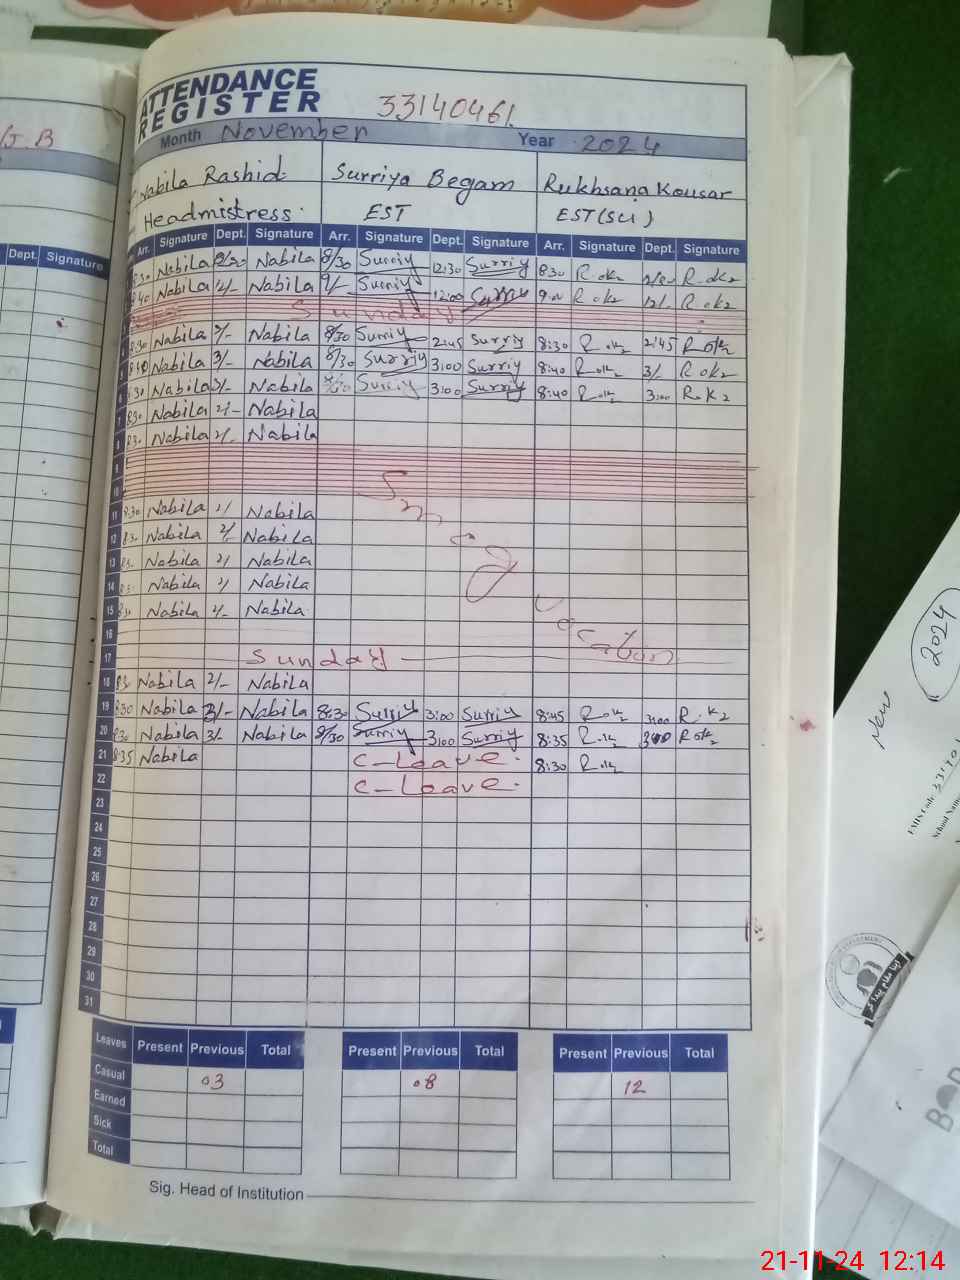 ATTENDANCE
REGISTER
33140461
Month November Year 2024
Nabila Rashid Surriya Begam Rukhsana Kousar
Headmistress EST EST(SCI)
Dept. Signature
Arr. Signature Dept. Signature Arr. Signature Dept. Signature Arr. Signature Dept. Signature
8:30 Nabila Nabila 8/30 Surriy 12:30 Surriy 8:30 R.ok2 R.ok2
Nabila 12/- Nabila 9/- Surriy 12:00 Surriy 9:00 R.ok2 12/- R.ok2
Sunday
4 8:30 Nabila 2/- Nabila 8/30 Surriy 2:45 Surriy 8:30 R.ok2 2:45 R.ok2
5 8:40 Nabila 3/- Nabila 8/30 Surriy 3:00 Surriy 8:40 R.ok2 3/- R.ok2
6 8:30 Nabila 3/- Nabila Surriy 3:00 Surriy 8:40 R.ok2 3:00 R.K2
7 8:30 Nabila 2/- Nabila
8 8:30 Nabila 2/- Nabila
9
10
Smog Vacation
11 8:30 Nabila 2/ Nabila
12 8:30 Nabila 2/ Nabila
13 8:30 Nabila 2/ Nabila
14 8:30 Nabila 2/ Nabila
15 8:30 Nabila 2/- Nabila
16
17 Sunday
18 8:30 Nabila 2/- Nabila
19 8:30 Nabila 3/- Nabila 8:30 Surriy 3:00 Surriy 8:45 R.ok2 3:00 R.K2
20 8:30 Nabila 3/- Nabila 8/30 Surriy 3:00 Surriy 8:35 R.ok2 3:00 R.ok2
21 8:35 Nabila C-Leave. 8:30 R.ok2
22 C-Leave.
23
24
25
26
27
28
29
30
31
Leaves Present Previous Total Present Previous Total Present Previous Total
Casual 03 08 12
Earned
Sick
Total
Sig. Head of Institution
2024
New
21-11-24 12:14